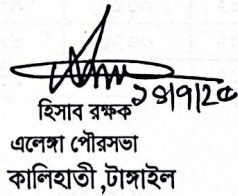 ১৪/৭/২৫
হিসাব রক্ষক
এলেঙ্গা পৌরসভা
কালিহাতী ,টাঙ্গাইল